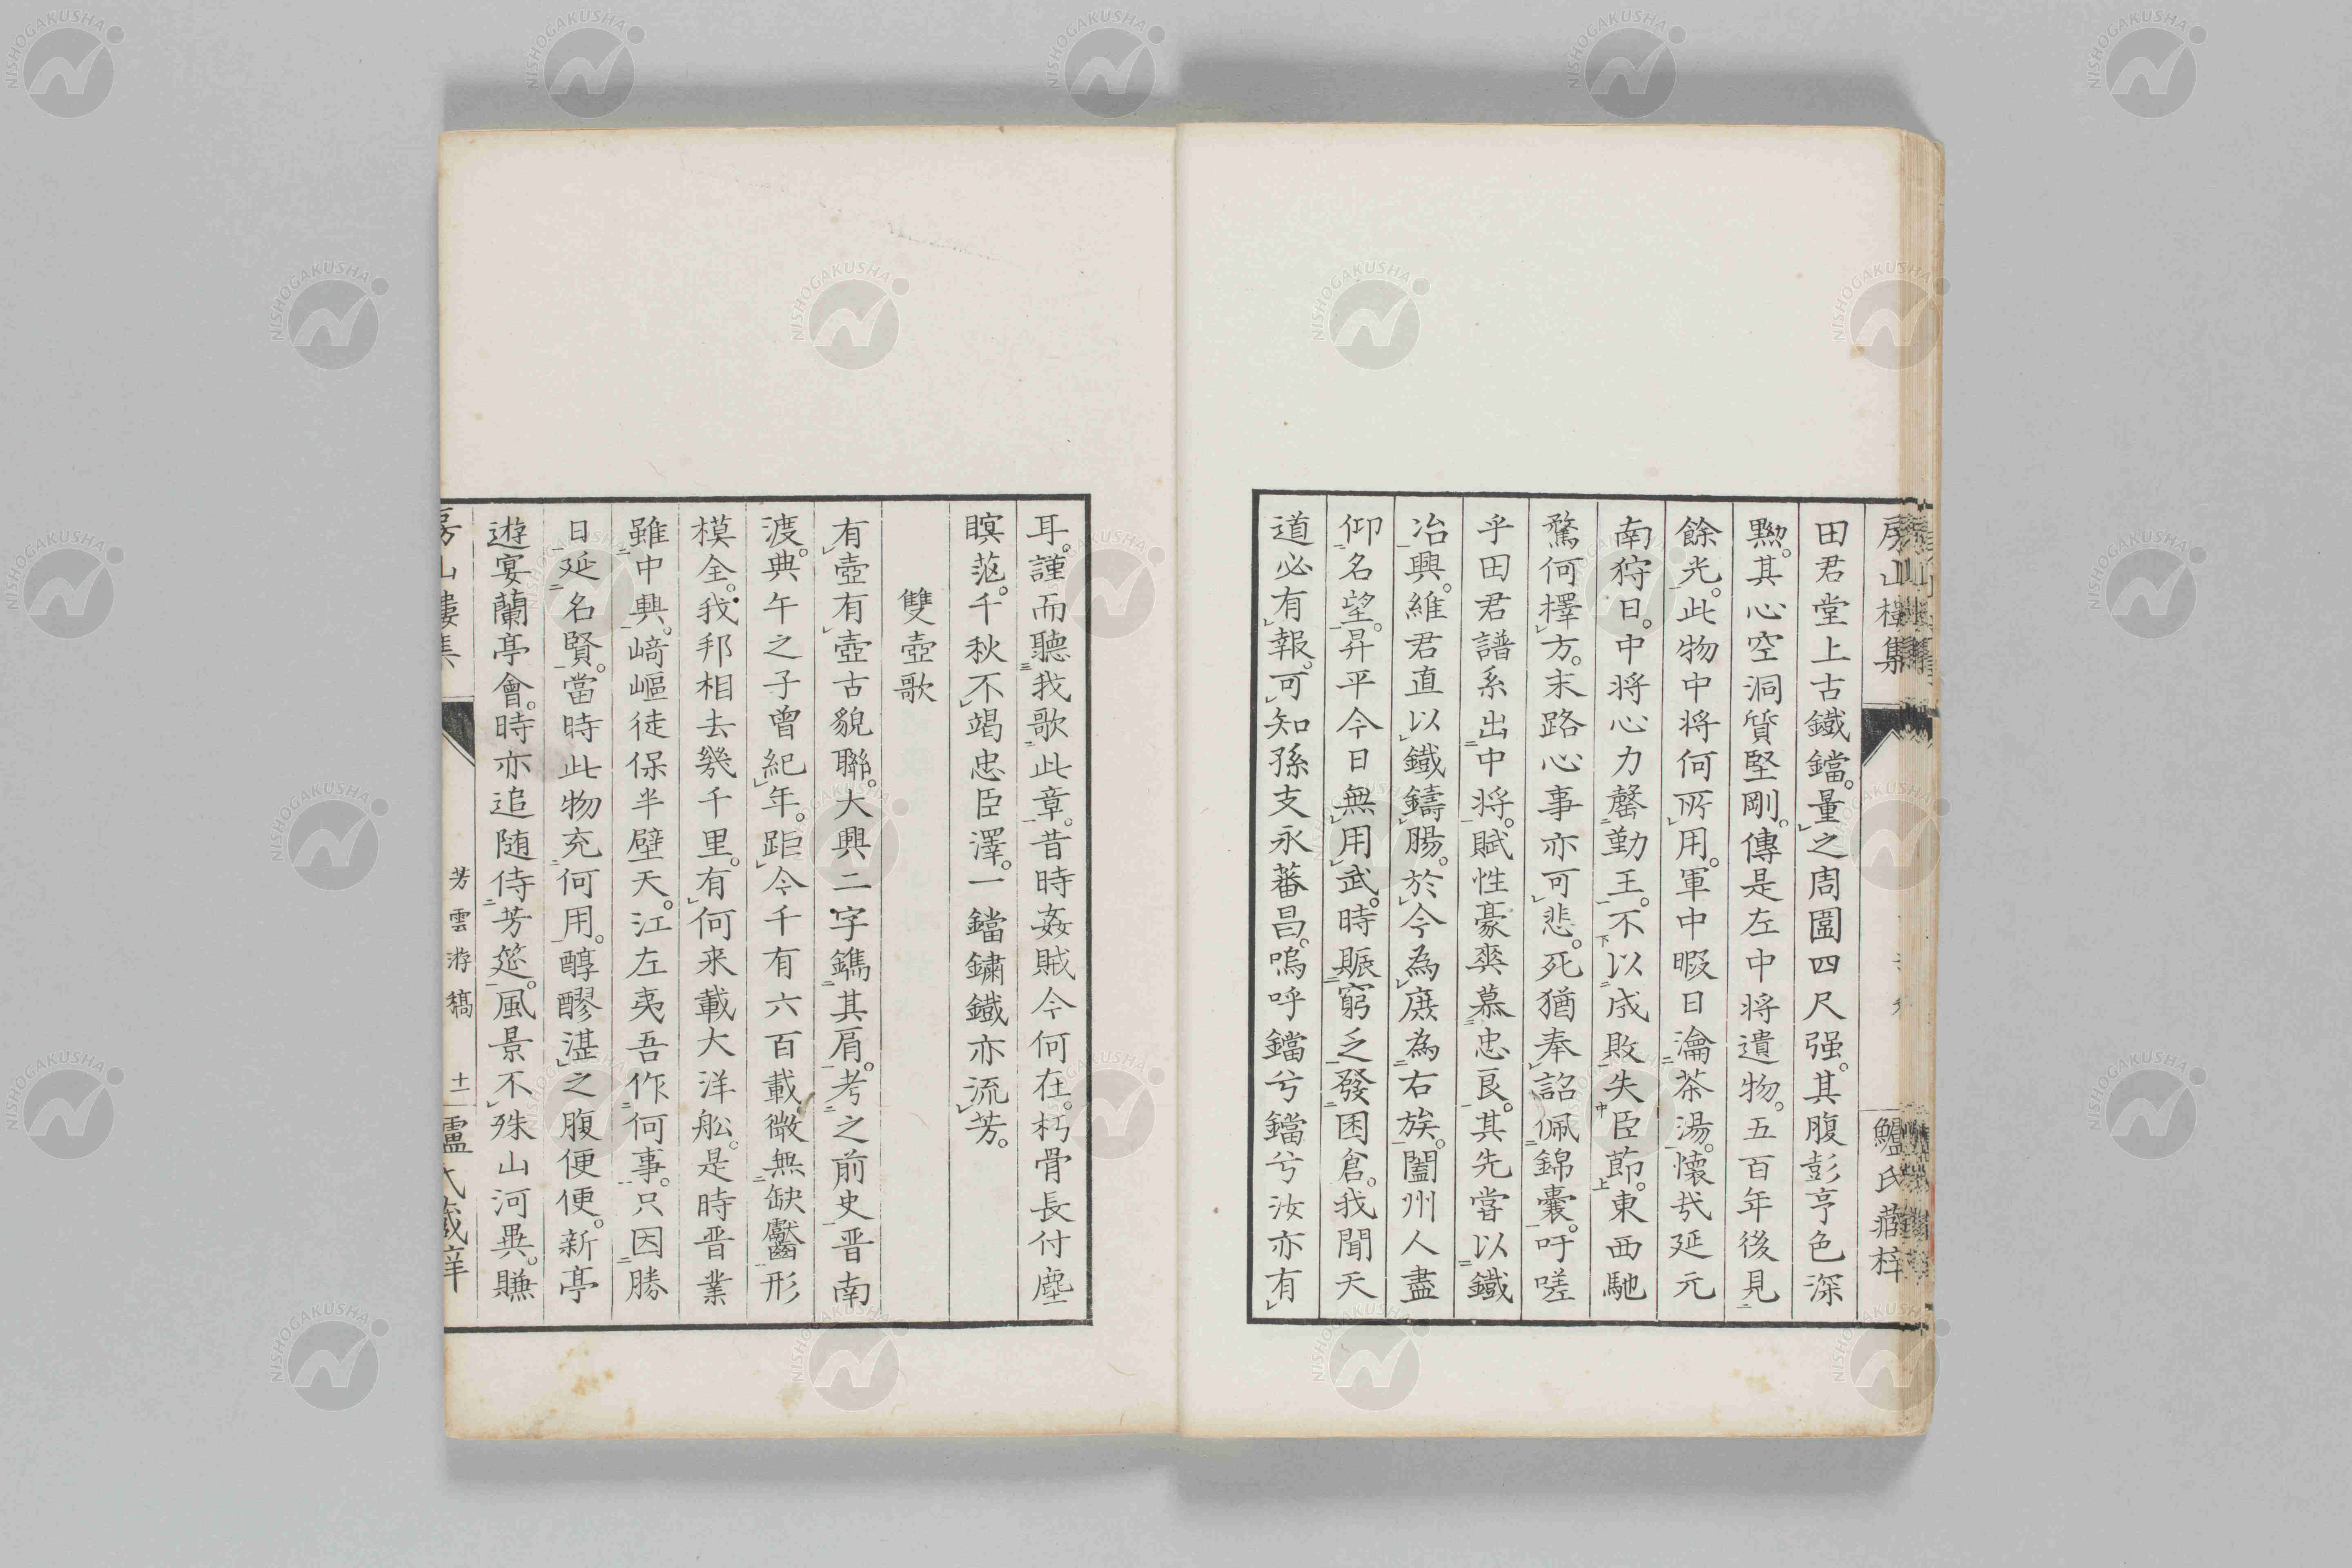 田君堂上古鐵鐺。量之周圍四尺强。其腹彭亨色深
黝。其心空洞質堅剛。傳是左中將遺物。五百年後見
餘光。此物中將何所用。軍中暇日瀹茶湯。懷哉延元
南狩日。中將心力罄勤王。不以成敗失臣節。東西馳
騖何擇方。末路心事亦可悲。死猶奉詔佩錦囊。吁嗟
乎田君譜系出中將。賦性豪爽慕忠良。其先嘗以鐵
冶興。維君直以鐵鑄腸。於今為庶為右族。闔州人盡
仰名望。昇平今日無用武。時賑窮乏發囷倉。我聞天
道必有報。可知孫支永蕃昌。嗚呼鐺兮鐺兮汝亦有
耳。謹而聽我歌此章。昔時姦賊今何在。朽骨長付塵
瞑茫。千秋不竭忠臣澤。一鐺鏽鐵亦流芳。
雙壺歌
有壺有壺古貌聯。大興二字鐫其肩。考之前史晋南
渡。典午之子曾紀年。距今千有六百載微無缺齾形
模全。我邦相去幾千里。有何来載大洋舩。是時晋業
雖中興。﨑嶇徒保半壁天。江左夷吾作何事。只因勝
日延名賢。當時此物充何用。醇醪湛之腹便便。新亭
遊宴蘭亭會。時亦追随侍芳筵。風景不殊山河異。賺
芳雲游稿
十一
NISHOGAKUSHA